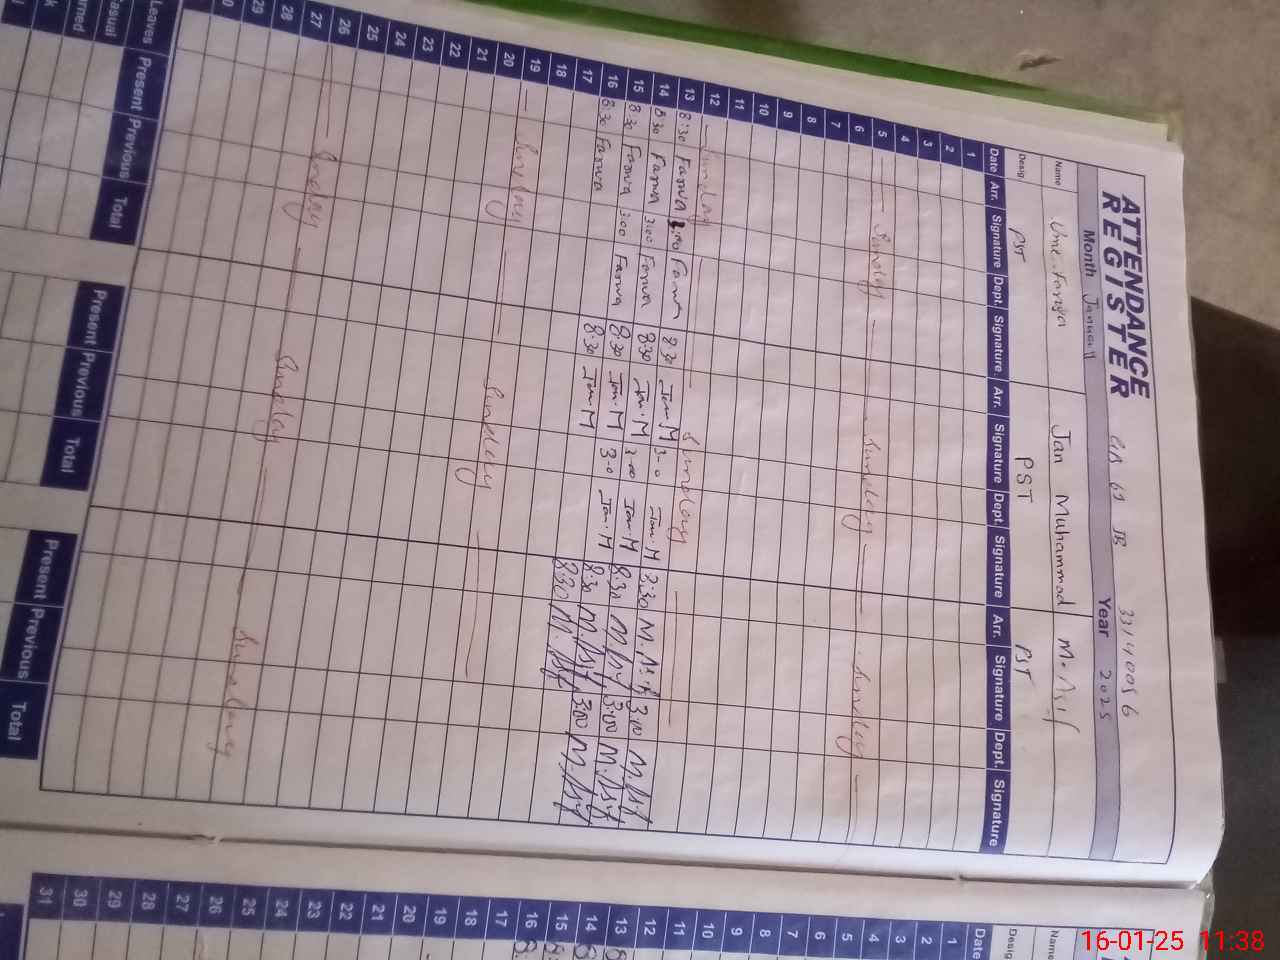 ATTENDANCE
REGISTER
GPS 69 JB 33140056
Month January Year 2025
Name Jan Muhammad M. Asif
Desig PST PST PST
Date Arr. Signature Dept. Signature. Arr. Signature Dept. Signature Arr. Signature Dept. Signature
1
2
3
4
5 Sunday Sunday Sunday
6
7
8
9
10
11
12 Sunday Sunday
13 8:30 Farwa 3:00 Farwa 8:30 Jan.M 3-0 Jan.M 8:30 3:00
14 8:30 Farwa 3:00 Farwa 8:30 Jan.M 3-00 Jan.M 8:30 3:00
15 8:30 Farwa 3:00 Farwa 8:30 Jan.M 3-0 Jan.M 8:30 3:00
16 8:30 Farwa 8:30 Jan.M 8:30
17
18
19 Sunday Sunday
20
21
22
23
24
25
26 Sunday Sunday Sunday
27
28
29
Leaves Present Previous Total Present Previous Total Present Previous Total
Casual
Name
Desig
Date
1
2
3
4
5
6
7
8
9
10
11
12
13
14
15
16
17
18
19
20
21
22
23
24
25
26
27
28
29
30
31
16-01-25 11:38